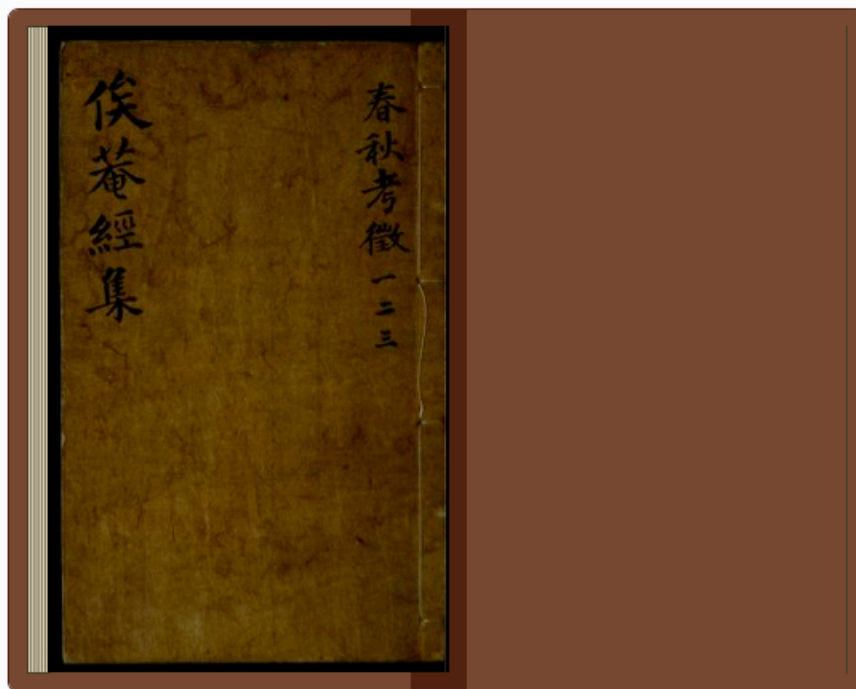 春秋考徵一二三
俟菴經集